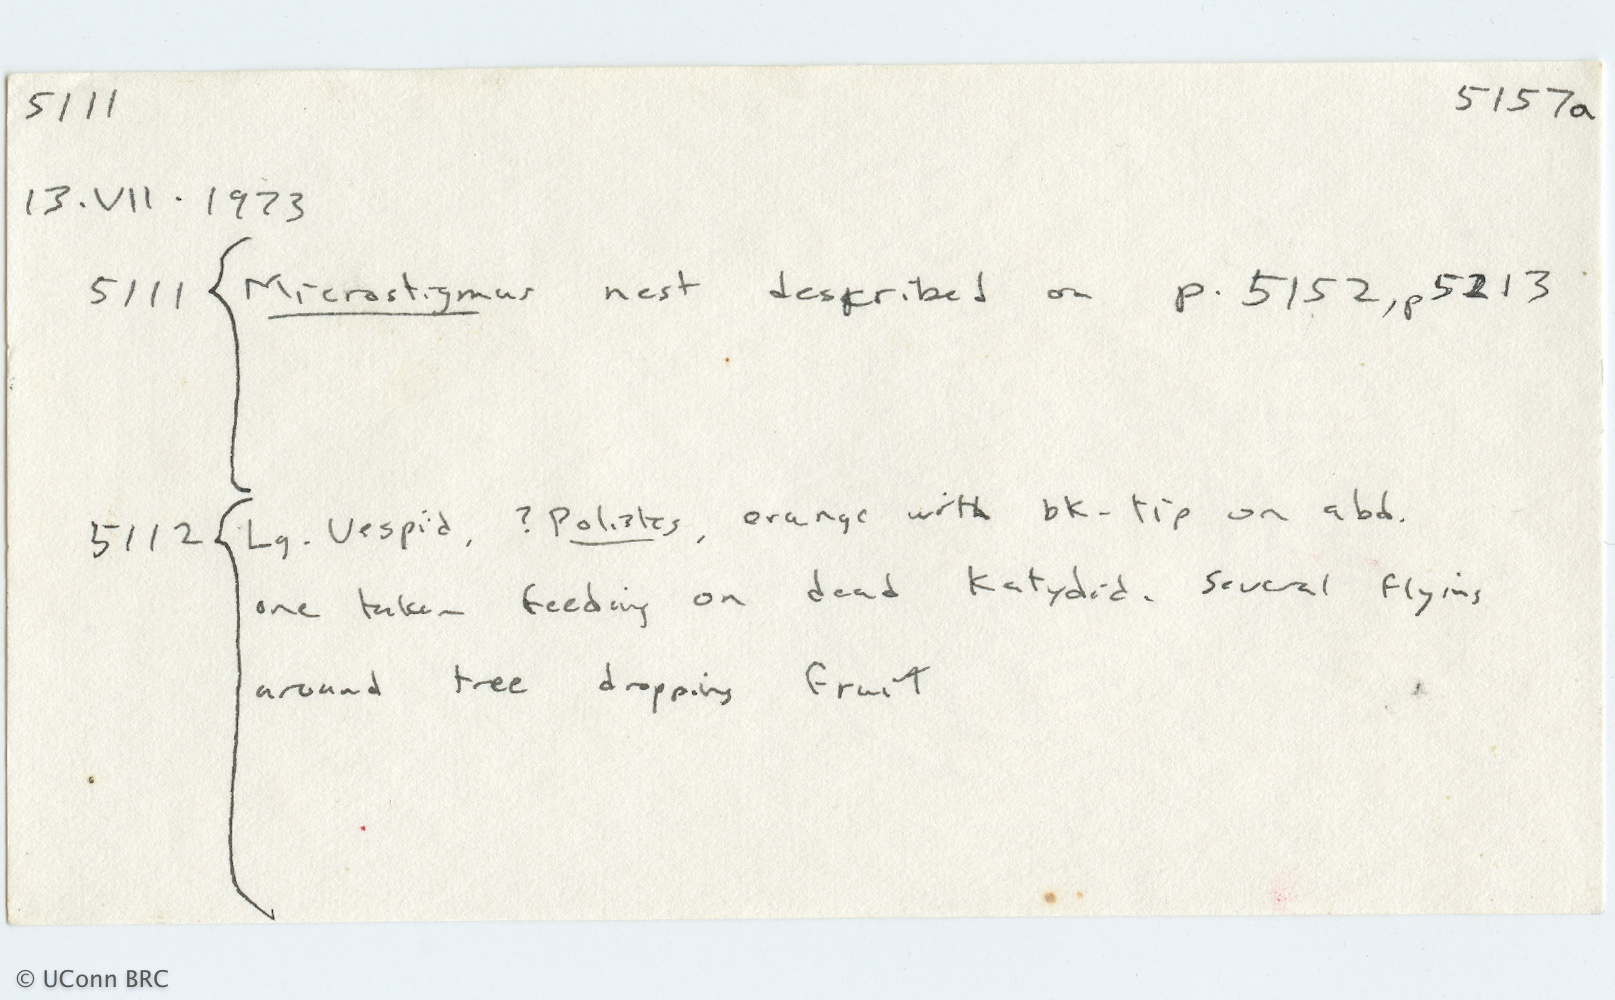 5111 5157a
13.VII.1973
5111 { Microstigmus nest described on p. 5152, p5213
5112 { Lg. Vespid, ?Polistes, orange with bk-tip on abd.
one taken feeding on dead katydid. Several flying
around tree dropping fruit
© UConn BRC